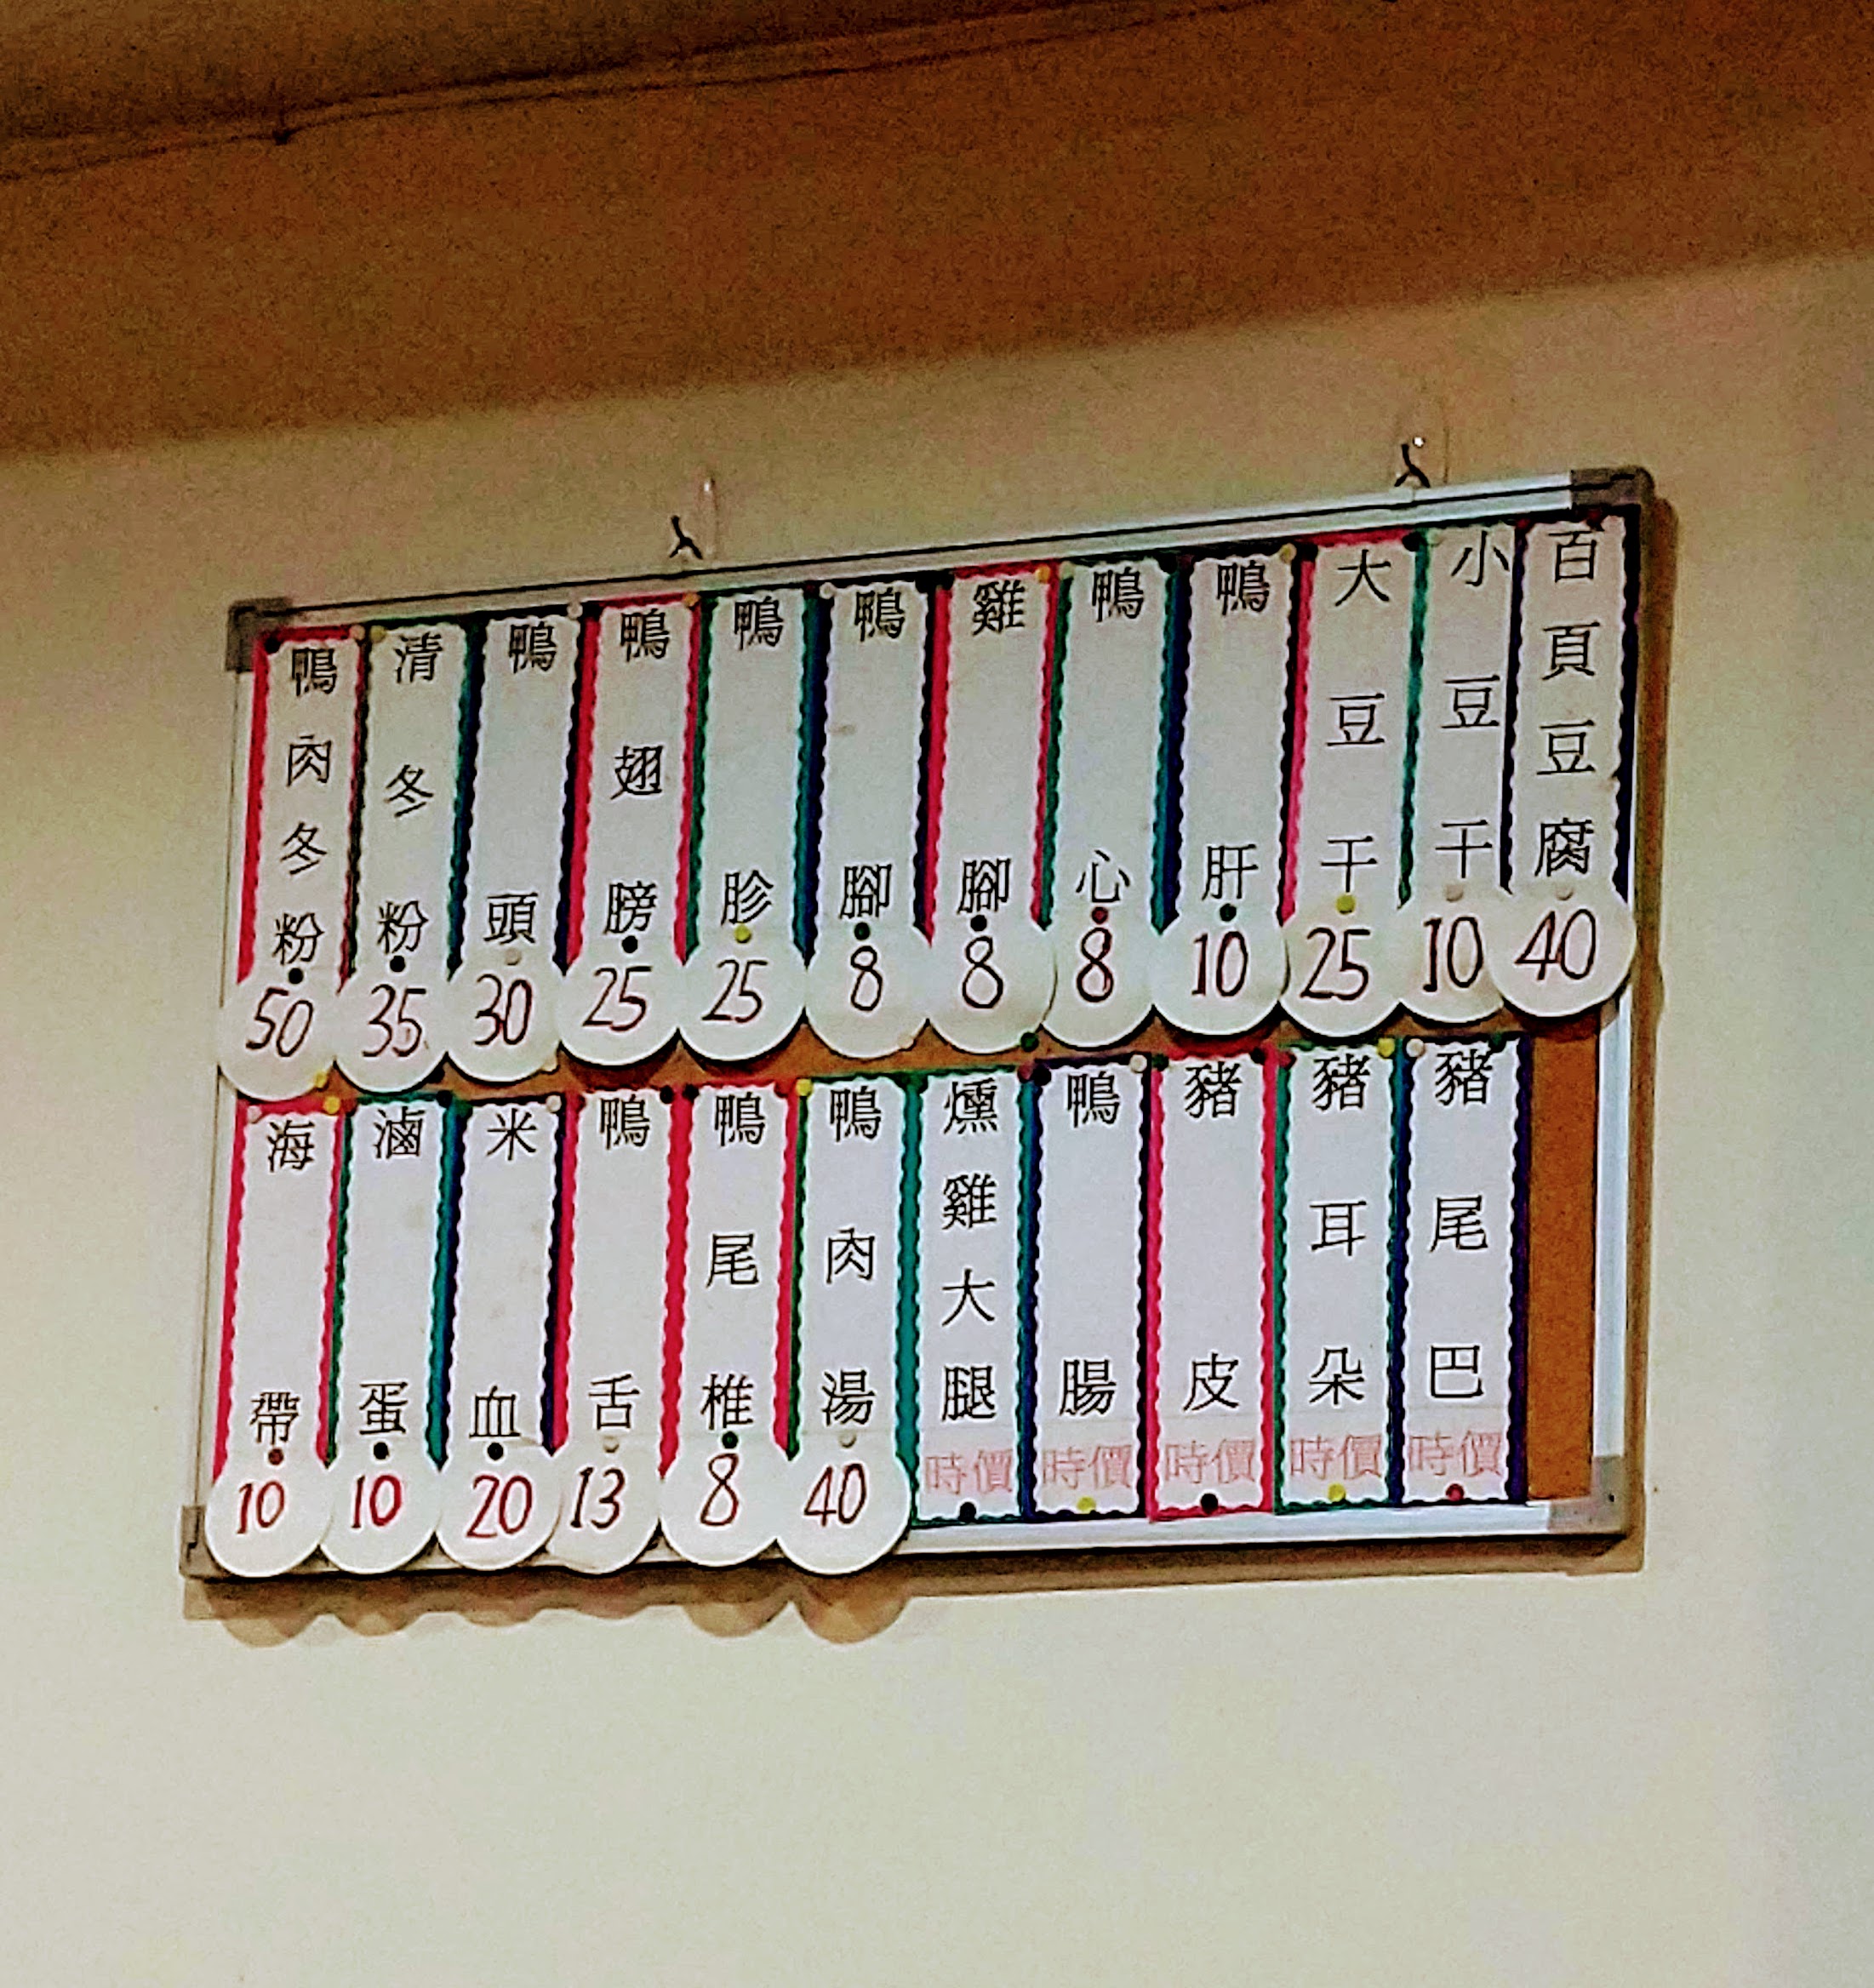 鴨肉冬粉 50
清冬粉 35
鴨頭 30
鴨翅膀 25
鴨胗 25
鴨腳 8
雞腳 8
鴨心 8
鴨肝 10
大豆干 25
小豆干 10
百頁豆腐 40
海帶 10
滷蛋 10
米血 20
鴨舌 13
鴨尾椎 8
鴨肉湯 40
燻雞大腿 時價
鴨腸 時價
豬皮 時價
豬耳朵 時價
豬尾巴 時價